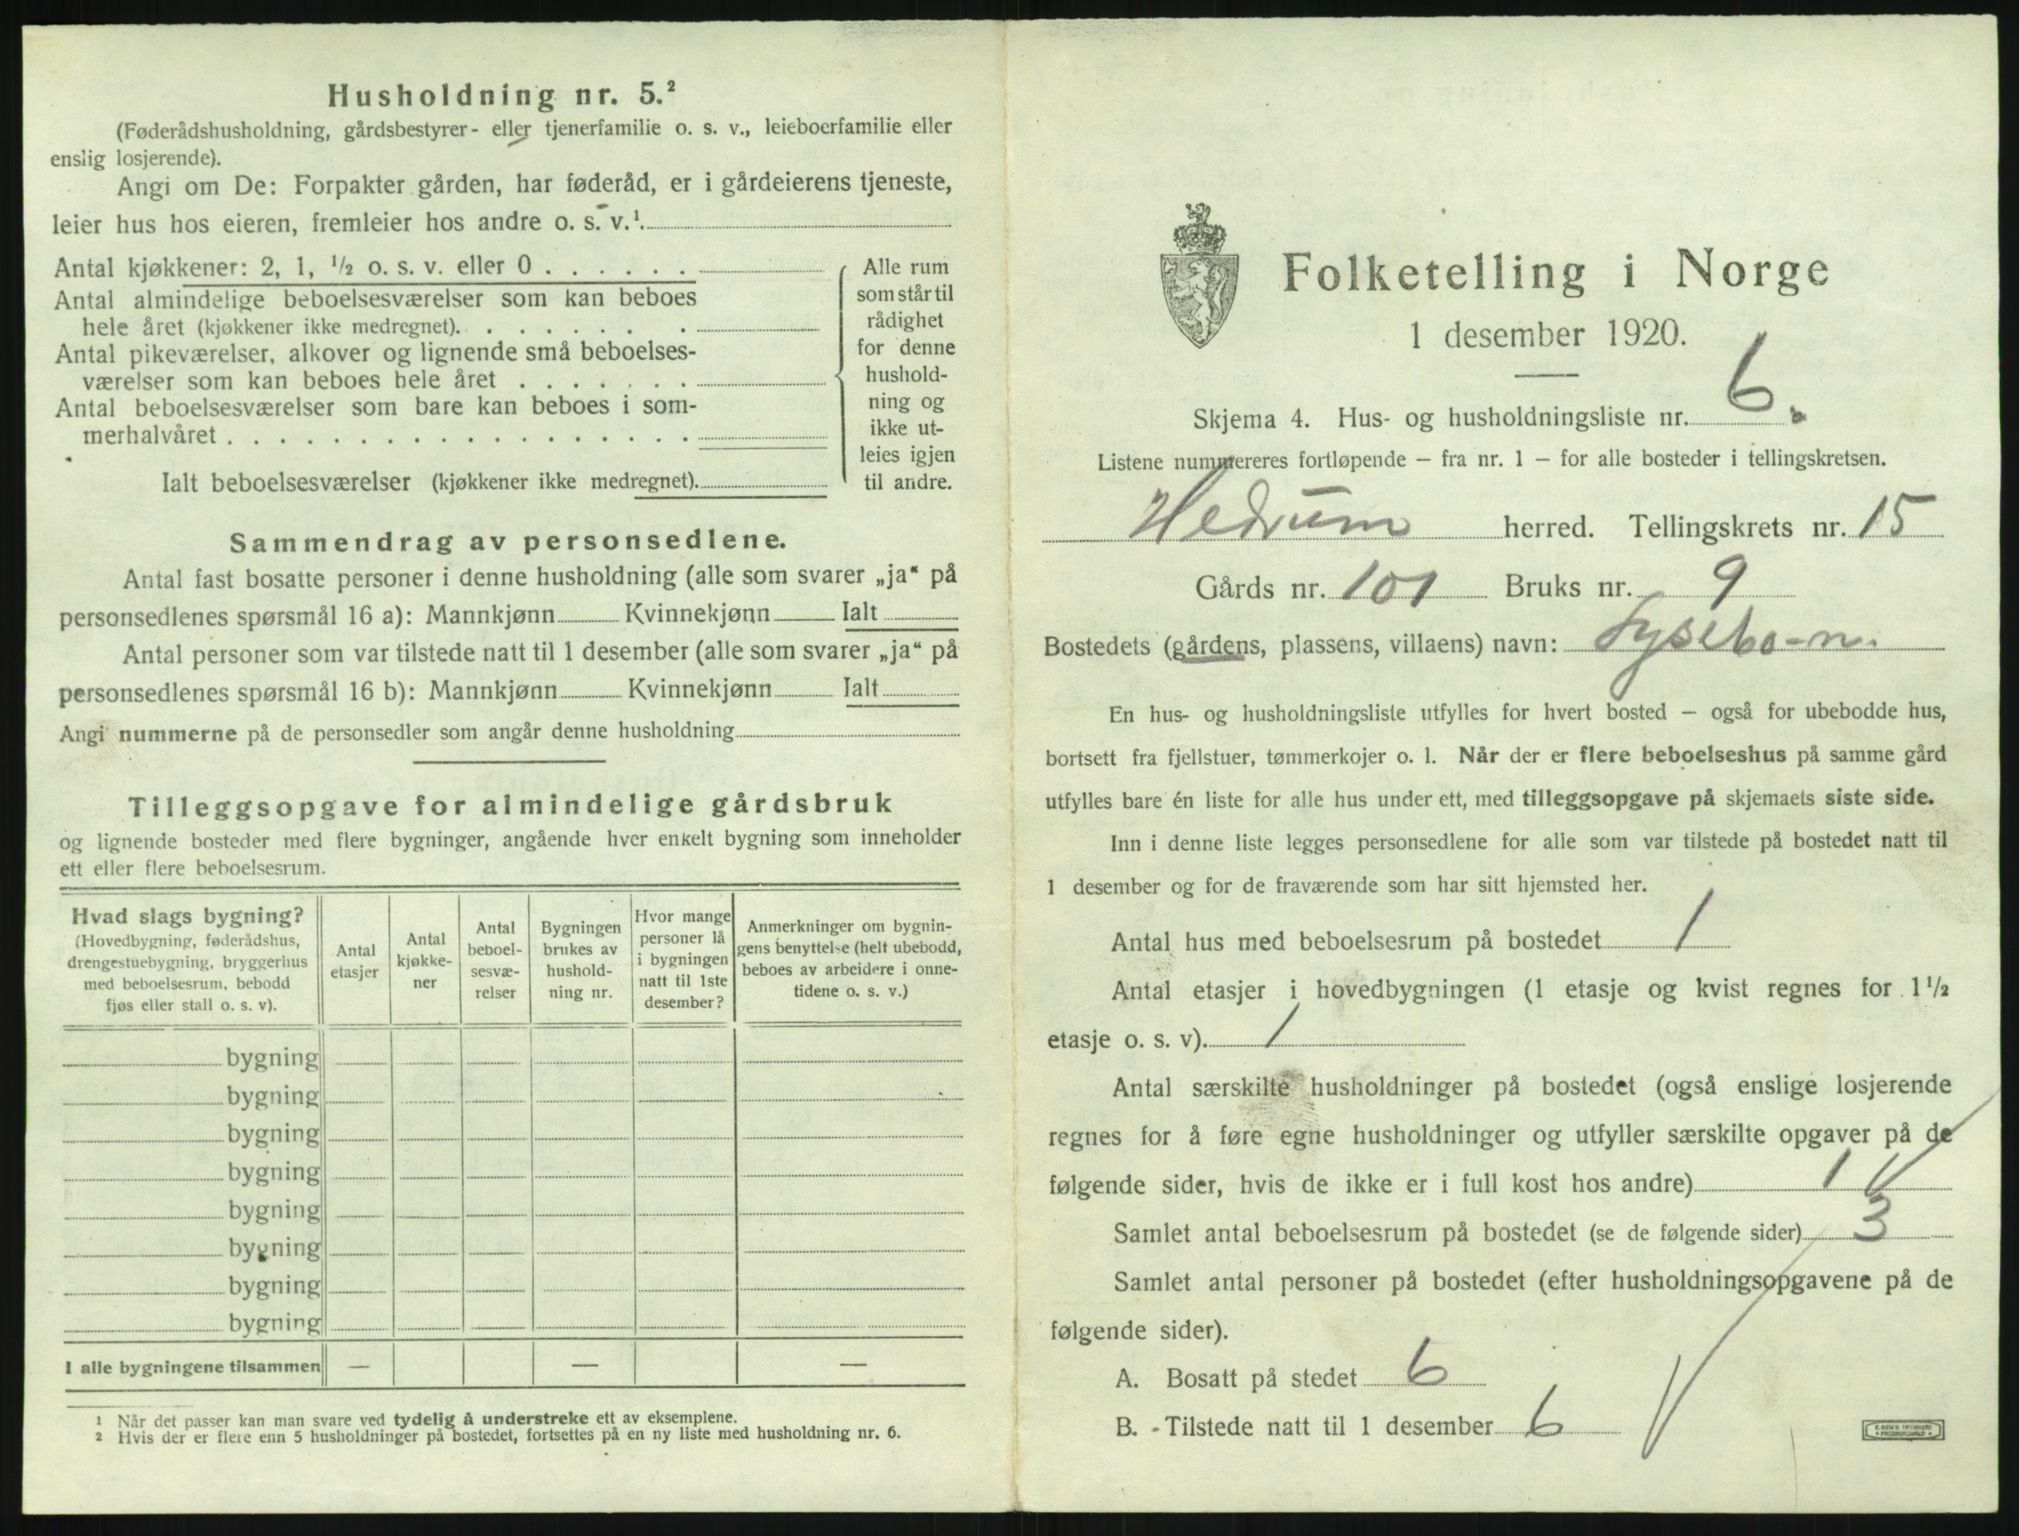 Husholdning nr. 5.²
(Føderådshusholdning, gårdsbestyrer- eller tjenerfamilie o. s. v., leieboerfamilie eller
enslig losjerende).
Angi om De: Forpakter gården, har føderåd, er i gårdeierens tjeneste,
leier hus hos eieren, fremleier hos andre o. s. v.¹
Antal kjøkkener: 2, 1, ½ o. s. v. eller 0 . . . . . .
Antal almindelige beboelsesværelser som kan beboes
hele året (kjøkkener ikke medregnet). . . . . . . .
Antal pikeværelser, alkover og lignende små beboelses-
værelser som kan beboes hele året . . . . . . .
Antal beboelsesværelser som bare kan beboes i som-
merhalvåret . . . . . . . . . . . . . . . . .
Ialt beboelsesværelser (kjøkkener ikke medregnet).
Alle rum
som står til
rådighet
for denne
hushold-
ning og
ikke ut-
leies igjen
til andre.
Sammendrag av personsedlene.
Antal fast bosatte personer i denne husholdning (alle som svarer „ja“ på
personsedlenes spørsmål 16 a): Mannkjønn Kvinnekjønn Ialt
Antal personer som var tilstede natt til 1 desember (alle som svarer „ja“ på
personsedlenes spørsmål 16 b): Mannkjønn Kvinnekjønn Ialt
Angi nummerne på de personsedler som angår denne husholdning
Tilleggsopgave for almindelige gårdsbruk
og lignende bosteder med flere bygninger, angående hver enkelt bygning som inneholder
ett eller flere beboelsesrum.
Hvad slags bygning?
(Hovedbygning, føderådshus,
drengestuebygning, bryggerhus
med beboelsesrum, bebodd
fjøs eller stall o. s. v).
Antal
etasjer
Antal
kjøkke-
ner
Antal
beboel-
sesvæ-
relser
Bygningen
brukes av
hushold-
ning nr.
Hvor mange
personer lå
i bygningen
natt til 1ste
desember?
Anmerkninger om bygnin-
gens benyttelse (helt ubebodd,
beboes av arbeidere i onne-
tidene o. s. v.)
bygning
bygning
bygning
bygning
bygning
bygning
bygning
bygning
I alle bygningene tilsammen — — —
¹ Når det passer kan man svare ved tydelig å understreke ett av eksemplene.
² Hvis der er flere enn 5 husholdninger på bostedet, fortsettes på en ny liste med husholdning nr. 6.
Folketelling i Norge
1 desember 1920.
Skjema 4. Hus- og husholdningsliste nr. 6.
Listene nummereres fortløpende – fra nr. 1 – for alle bosteder i tellingskretsen.
Hedrum herred. Tellingskrets nr. 15
Gårds nr. 101 Bruks nr. 9
Bostedets (gårdens, plassens, villaens) navn: Lysebo-n.
En hus- og husholdningsliste utfylles for hvert bosted – også for ubebodde hus,
bortsett fra fjellstuer, tømmerkojer o. l. Når der er flere beboelseshus på samme gård
utfylles bare én liste for alle hus under ett, med tilleggsopgave på skjemaets siste side.
Inn i denne liste legges personsedlene for alle som var tilstede på bostedet natt til
1 desember og for de fraværende som har sitt hjemsted her.
Antal hus med beboelsesrum på bostedet 1
Antal etasjer i hovedbygningen (1 etasje og kvist regnes for 1½
etasje o. s. v). 1
Antal særskilte husholdninger på bostedet (også enslige losjerende
regnes for å føre egne husholdninger og utfyller særskilte opgaver på de
følgende sider, hvis de ikke er i full kost hos andre) 1
Samlet antal beboelsesrum på bostedet (se de følgende sider) 3
Samlet antal personer på bostedet (efter husholdningsopgavene på de
følgende sider).
A. Bosatt på stedet 6
B. Tilstede natt til 1 desember 6